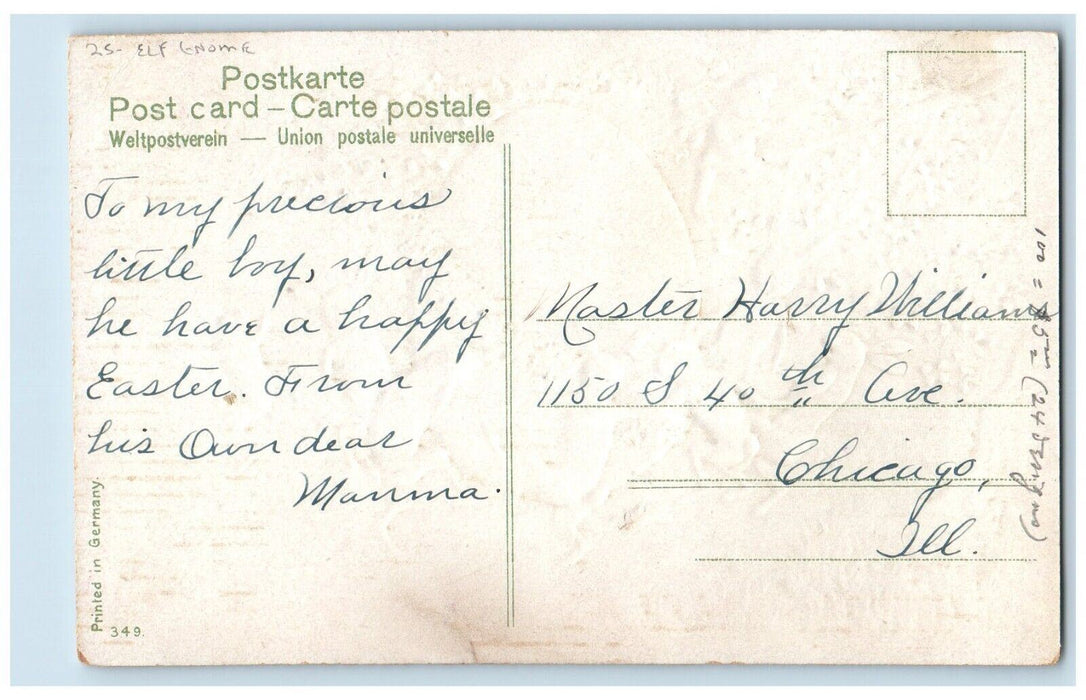 25- ELF GNOME
Postkarte
Post card – Carte postale
Weltpostverein — Union postale universelle
To my precious
little boy, may
he have a happy
Easter. From
his Own dear
Mamma.
Master Harry Williams
1150 S 40th Ave.
Chicago,
Ill.
100 =
(24
Printed in Germany.
349.